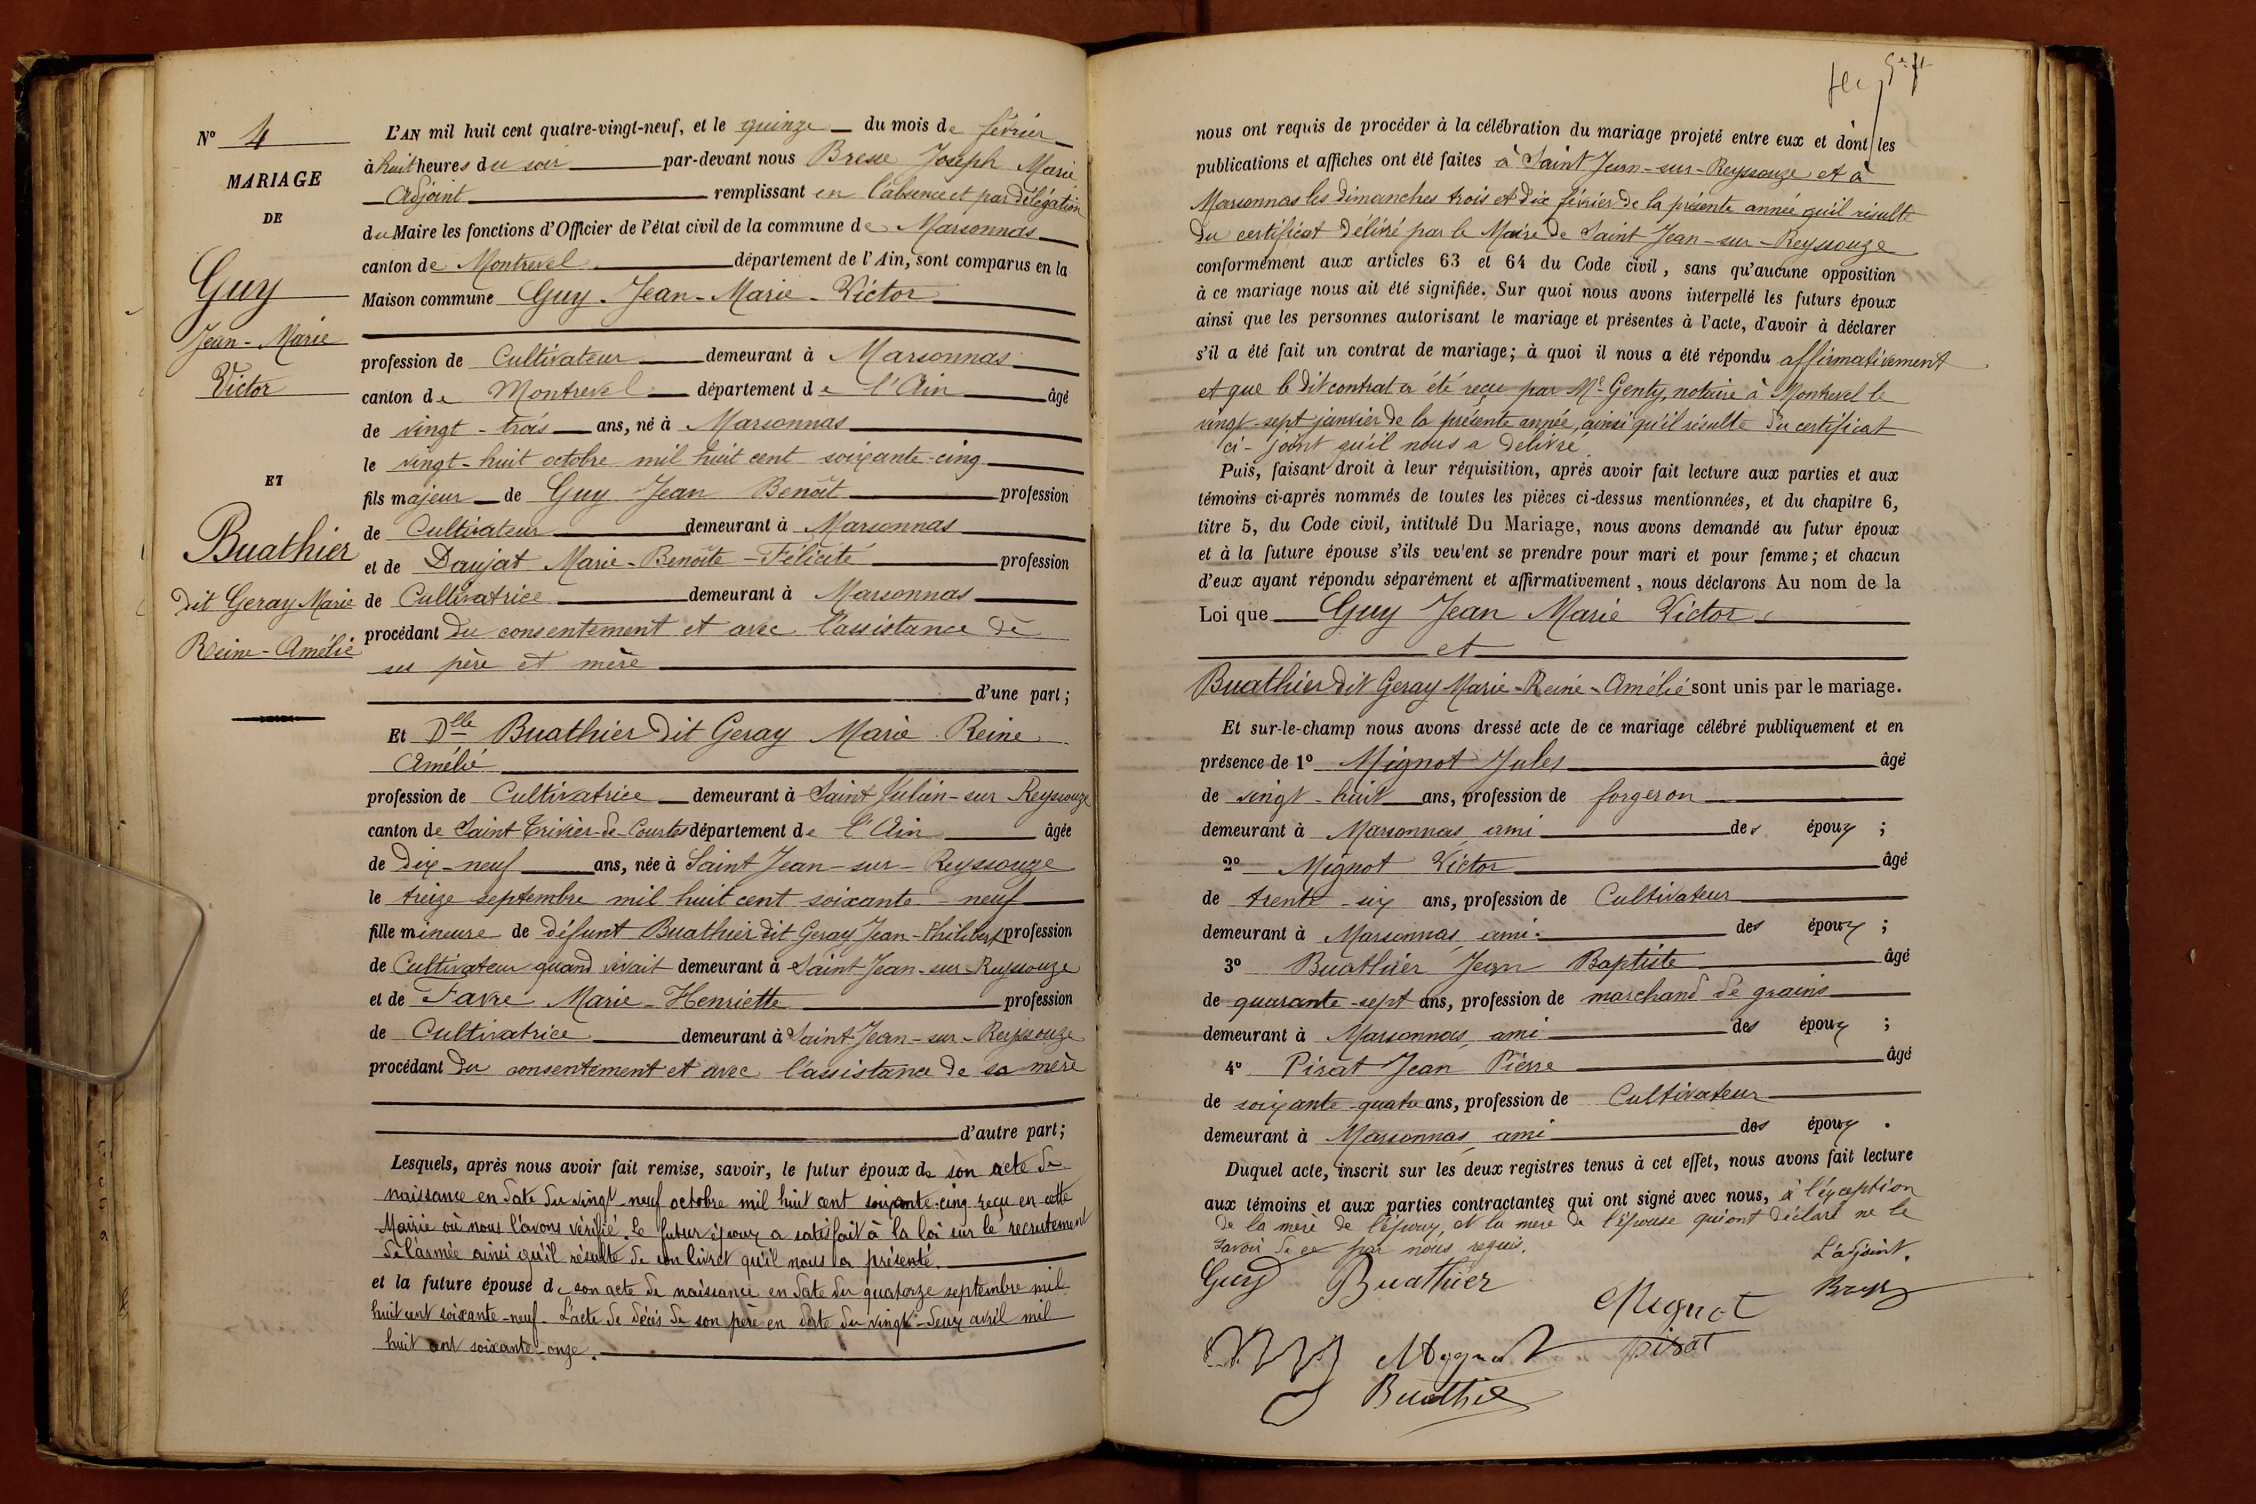 N° 4
MARIAGE
DE
Guy
Jean-Marie
Victor
ET
Buathier
dit Geray Marie
Reine-Amélie
L'AN mil huit cent quatre-vingt-neuf, et le quinze du mois de février
à huit heures du soir par-devant nous Bresse Joseph Marie
Adjoint remplissant en l'absence et par délégation
du Maire les fonctions d'Officier de l'état civil de la commune de Marsonnas
canton de Montrevel département de l'Ain, sont comparus en la
Maison commune Guy Jean-Marie-Victor
profession de Cultivateur demeurant à Marsonnas
canton de Montrevel département de l'Ain âgé
de vingt-trois ans, né à Marsonnas
le vingt-huit octobre mil huit cent soixante-cinq
fils majeur de Guy Jean Benoît profession
de Cultivateur demeurant à Marsonnas
et de Daujat Marie-Benoîte-Félicité profession
de Cultivatrice demeurant à Marsonnas
procédant du consentement et avec l'assistance de
ses père et mère
d'une part;
Et Dlle Buathier dit Geray Marie Reine
Amélie
profession de Cultivatrice demeurant à Saint Julien-sur-Reyssouze
canton de Saint-Trivier-de-Courtes département de l'Ain âgée
de dix-neuf ans, née à Saint Jean-sur-Reyssouze
le treize septembre mil huit cent soixante-neuf
fille mineure de défunt Buathier dit Geray Jean-Philibert profession
de Cultivateur quand vivait demeurant à Saint Jean-sur-Reyssouze
et de Favre Marie-Henriette profession
de Cultivatrice demeurant à Saint-Jean-sur-Reyssouze
procédant du consentement et avec l'assistance de sa mère
d'autre part;
Lesquels, après nous avoir fait remise, savoir, le futur époux de son acte de
naissance en date du vingt-neuf octobre mil huit cent soixante-cinq reçu en cette
Mairie où nous l'avons vérifié. Le futur époux a satisfait à la loi sur le recrutement
de l'armée ainsi qu'il résulte de son livret qu'il nous a présenté.
et la future épouse de son acte de naissance en date du quatorze septembre mil
huit cent soixante-neuf. L'acte de décès de son père en date du vingt-deux avril mil
huit cent soixante-onze.
nous ont requis de procéder à la célébration du mariage projeté entre eux et dont les
publications et affiches ont été faites à Saint Jean-sur-Reyssouze et à
Marsonnas les dimanches trois et dix février de la présente année qu'il résulte
du certificat délivré par le Maire de Saint Jean-sur-Reyssouze
conformément aux articles 63 et 64 du Code civil, sans qu'aucune opposition
à ce mariage nous ait été signifiée. Sur quoi nous avons interpellé les futurs époux
ainsi que les personnes autorisant le mariage et présentes à l'acte, d'avoir à déclarer
s'il a été fait un contrat de mariage; à quoi il nous a été répondu affirmativement
et que le dit contrat a été reçu par Me Genty, notaire à Montrevel le
vingt-sept janvier de la présente année, ainsi qu'il résulte du certificat
ci-joint qu'il nous a delivré.
Puis, faisant droit à leur réquisition, après avoir fait lecture aux parties et aux
témoins ci-après nommés de toutes les pièces ci-dessus mentionnées, et du chapitre 6,
titre 5, du Code civil, intitulé Du Mariage, nous avons demandé au futur époux
et à la future épouse s'ils veulent se prendre pour mari et pour femme; et chacun
d'eux ayant répondu séparément et affirmativement, nous déclarons Au nom de la
Loi que Guy Jean Marie Victor
et
Buathier dit Geray Marie-Reine-Amélie sont unis par le mariage.
Et sur-le-champ nous avons dressé acte de ce mariage célébré publiquement et en
présence de 1° Mignot Jules âgé
de vingt-huit ans, profession de forgeron
demeurant à Marsonnas, ami des époux;
2° Mignot Victor âgé
de trente-six ans, profession de Cultivateur
demeurant à Marsonnas, ami des époux;
3° Buathier Jean Baptiste âgé
de quarante-sept ans, profession de marchand de grains
demeurant à Marsonnas, ami des époux;
4° Pirat Jean Pierre âgé
de soixante-quatre ans, profession de Cultivateur
demeurant à Marsonnas, ami des époux.
Duquel acte, inscrit sur les deux registres tenus à cet effet, nous avons fait lecture
aux témoins et aux parties contractantes qui ont signé avec nous, à l'exception
de la mère de l'époux et la mère de l'épouse qui ont déclaré ne le
savoir de ce par nous requis.
L'adjoint,
Guy Buathier Bresse
Mignot
Mignot Pirat
Buathier